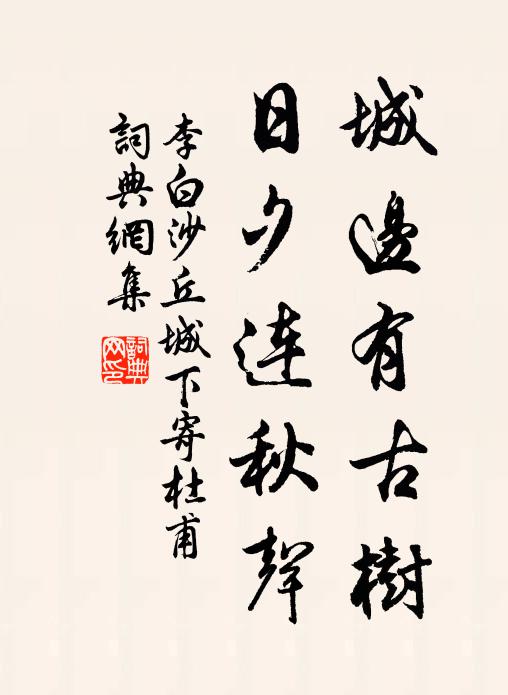 城邊有古樹
日夕连秋聲
李白沙丘城下寄杜甫
詞典網集
詞典網印